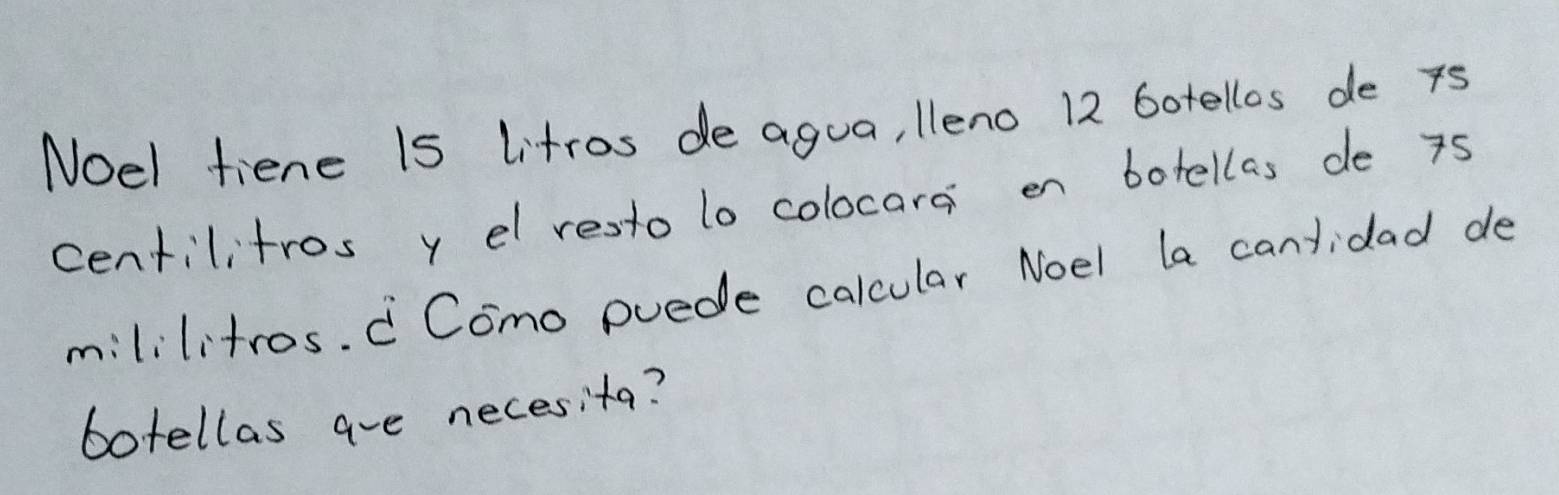 Noel tiene 15 litros de agua, lleno 12 botellas de 75
centilitros y el resto lo colocará en botellas de 75
mililitros. ¿Cómo puede calcular Noel la cantidad de
botellas que necesita?